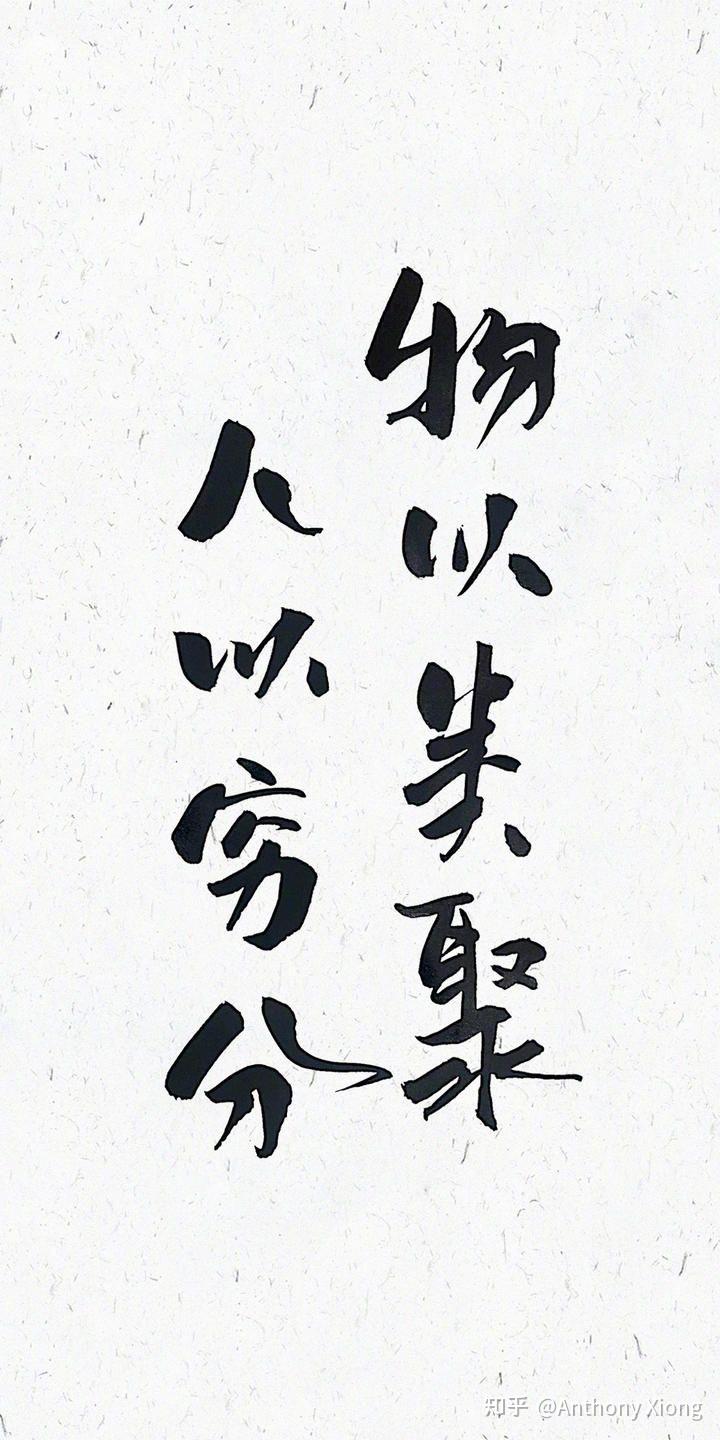 物以类聚
人以穷分
知乎 @Anthony Xiong